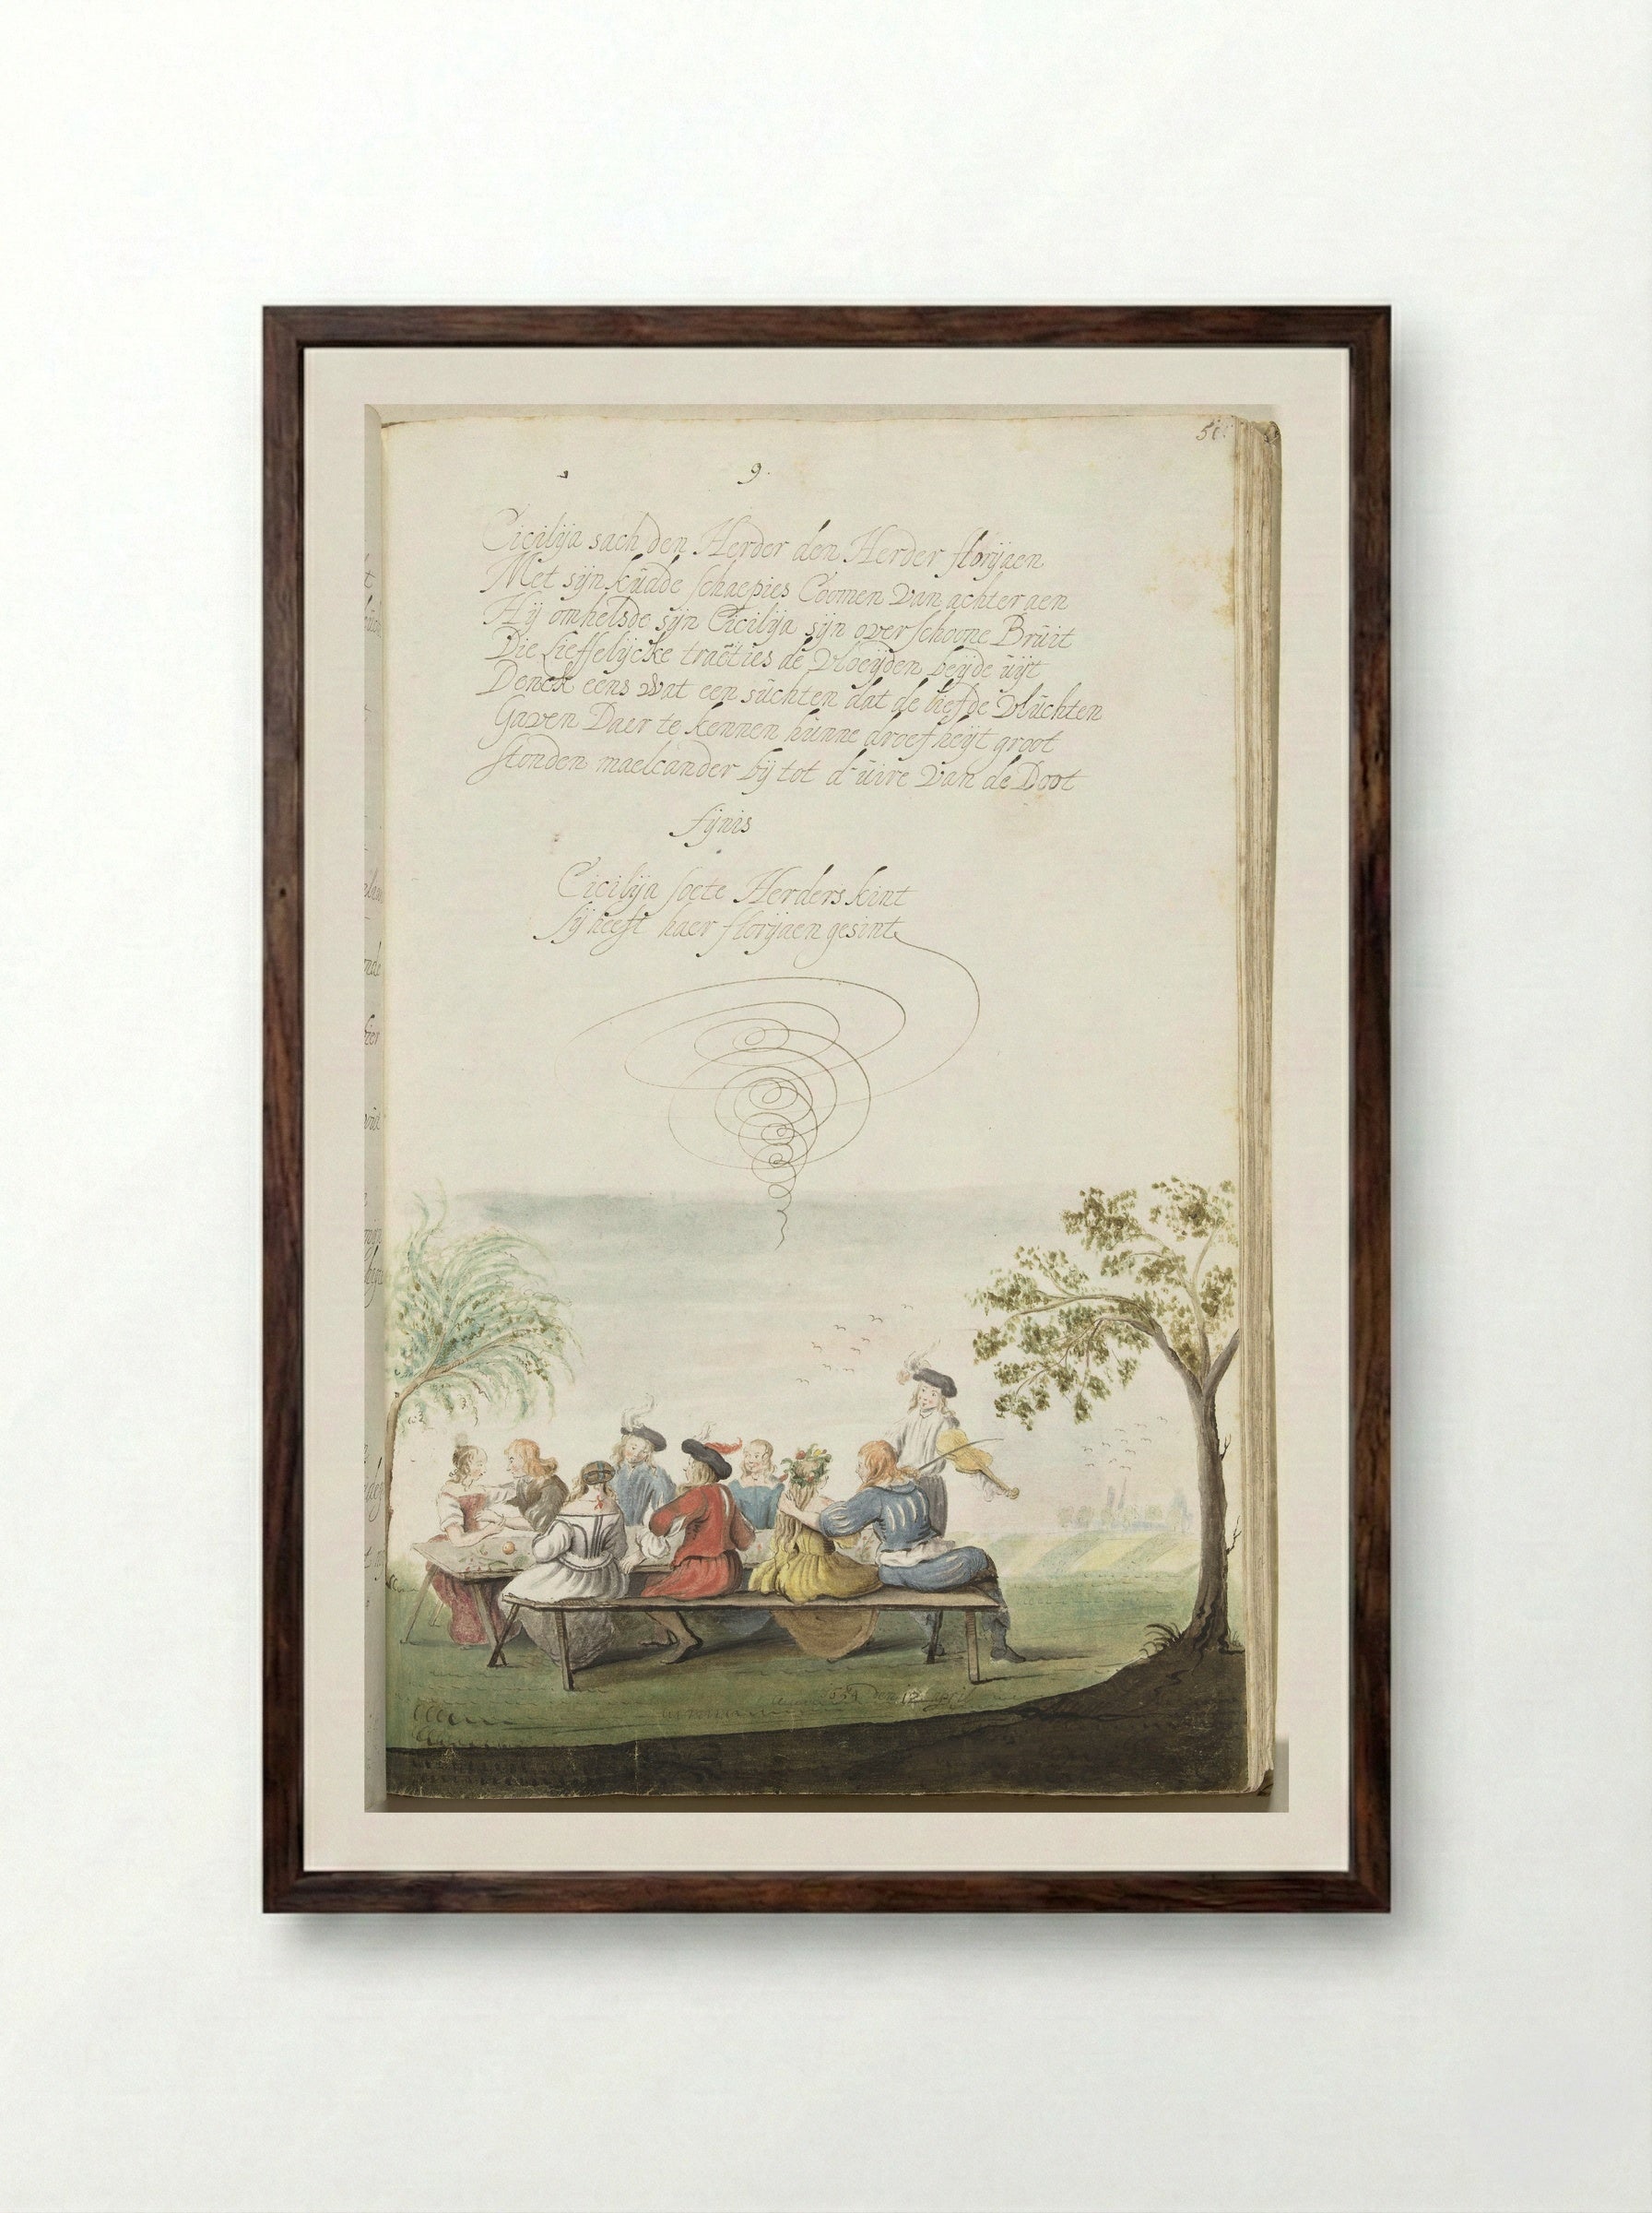 51
9.
Cicilija sach den Herder den Herder florijaen
Met sijn kudde schaepies Coomen van achter aen
Hij omhelsde sijn Cicilija sijn over schoone Brúit
Die Lieffelijcke tracties de vloeijden beijde úijt
Denck eens wat een súchten dat de liefde vlúchten
Gaven Daer te kennen húnne droefheijt groot
stonden maelcander bij tot d'úire van de Doot
fijnis
Cicilija soete Herders kint
sij heeft haer florijaen gesint
den 12 april